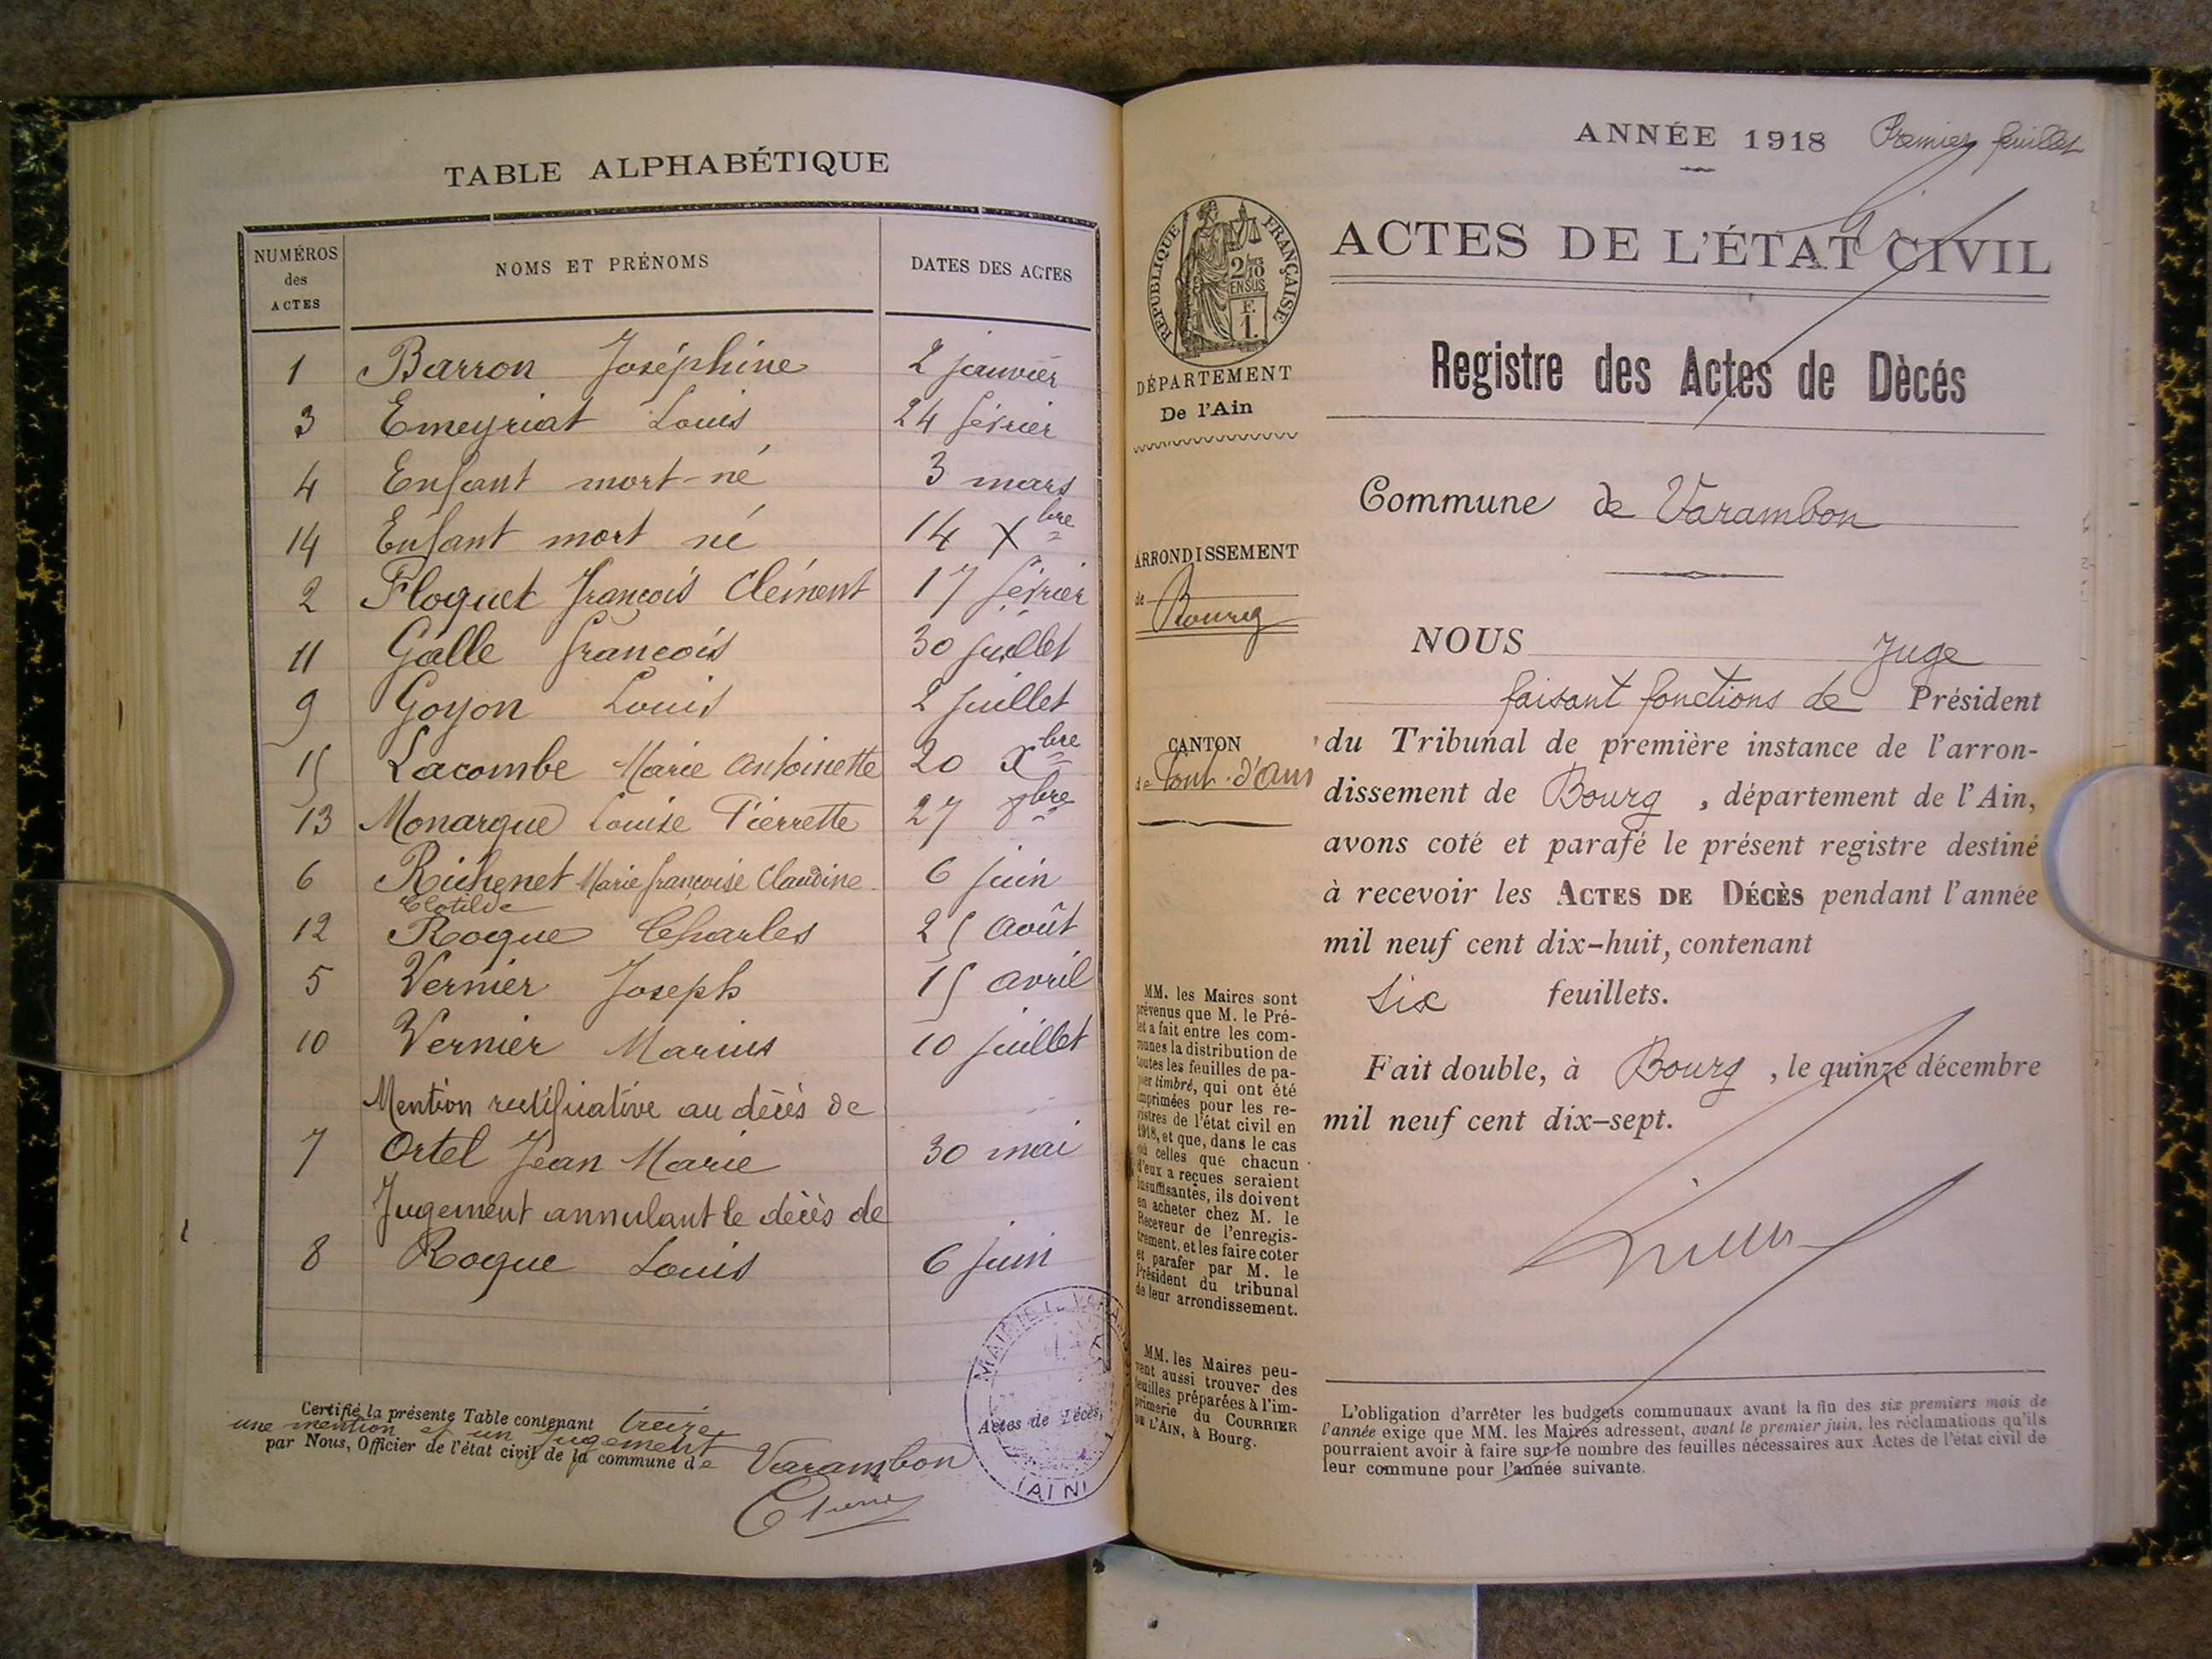 TABLE ALPHABÉTIQUE
NUMÉROS des ACTES NOMS ET PRÉNOMS DATES DES ACTES
1 Barron Joséphine 2 janvier
3 Emeyriat Louis 24 février
4 Enfant mort-né 3 mars
14 Enfant mort né 14 Xbre
2 Floquet François Clément 17 février
11 Gâlle François 30 juillet
9 Goyon Louis 2 juillet
15 Lacombe Marie Antoinette 20 Xbre
13 Monarque Louise Pierrette 27 8bre
6 Richenet Marie françoise Claudine 6 juin
Clotilde
12 Roque Charles 25 août
5 Vernier Joseph 15 avril
10 Vernier Marius 10 juillet
Mention rectificative au décès de
7 Ortel Jean Marie 30 mai
Jugement annulant le décès de
8 Roque Louis 6 juin
Certifié la présente Table contenant treize
une mention et un jugement
par Nous, Officier de l'état civil de la commune de Varambon
MAIRIE
Actes de Décès,
(AIN)
ANNÉE 1918 Premier feuillet
RÉPUBLIQUE FRANÇAISE
2/10
EN SUS
F.
1.
ACTES DE L'ÉTAT CIVIL
Registre des Actes de Dècés
DÉPARTEMENT
De l'Ain
Commune de Varambon
ARRONDISSEMENT
de Bourg
CANTON
de Pont-d'Ain
NOUS Juge
faisant fonctions de Président
du Tribunal de première instance de l'arron-
dissement de Bourg, département de l'Ain,
avons coté et parafé le présent registre destiné
à recevoir les ACTES DE DÉCÈS pendant l'année
mil neuf cent dix-huit, contenant
Six feuillets.
Fait double, à Bourg, le quinze décembre
mil neuf cent dix-sept.
MM. les Maires sont
prévenus que M. le Pré-
fet a fait entre les com-
munes la distribution de
toutes les feuilles de pa-
pier timbré, qui ont été
imprimées pour les re-
gistres de l'état civil en
1918, et que, dans le cas
où celles que chacun
d'eux a reçues seraient
insuffisantes, ils doivent
en acheter chez M. le
Receveur de l'enregis-
trement, et les faire coter
et parafer par M. le
Président du tribunal
de leur arrondissement.
MM. les Maires peu-
vent aussi trouver des
feuilles préparées à l'im-
primerie du COURRIER
DE L'AIN, à Bourg.
L'obligation d'arrêter les budgets communaux avant la fin des six premiers mois de
l'année exige que MM. les Maires adressent, avant le premier juin, les réclamations qu'ils
pourraient avoir à faire sur le nombre des feuilles nécessaires aux Actes de l'état civil de
leur commune pour l'année suivante.